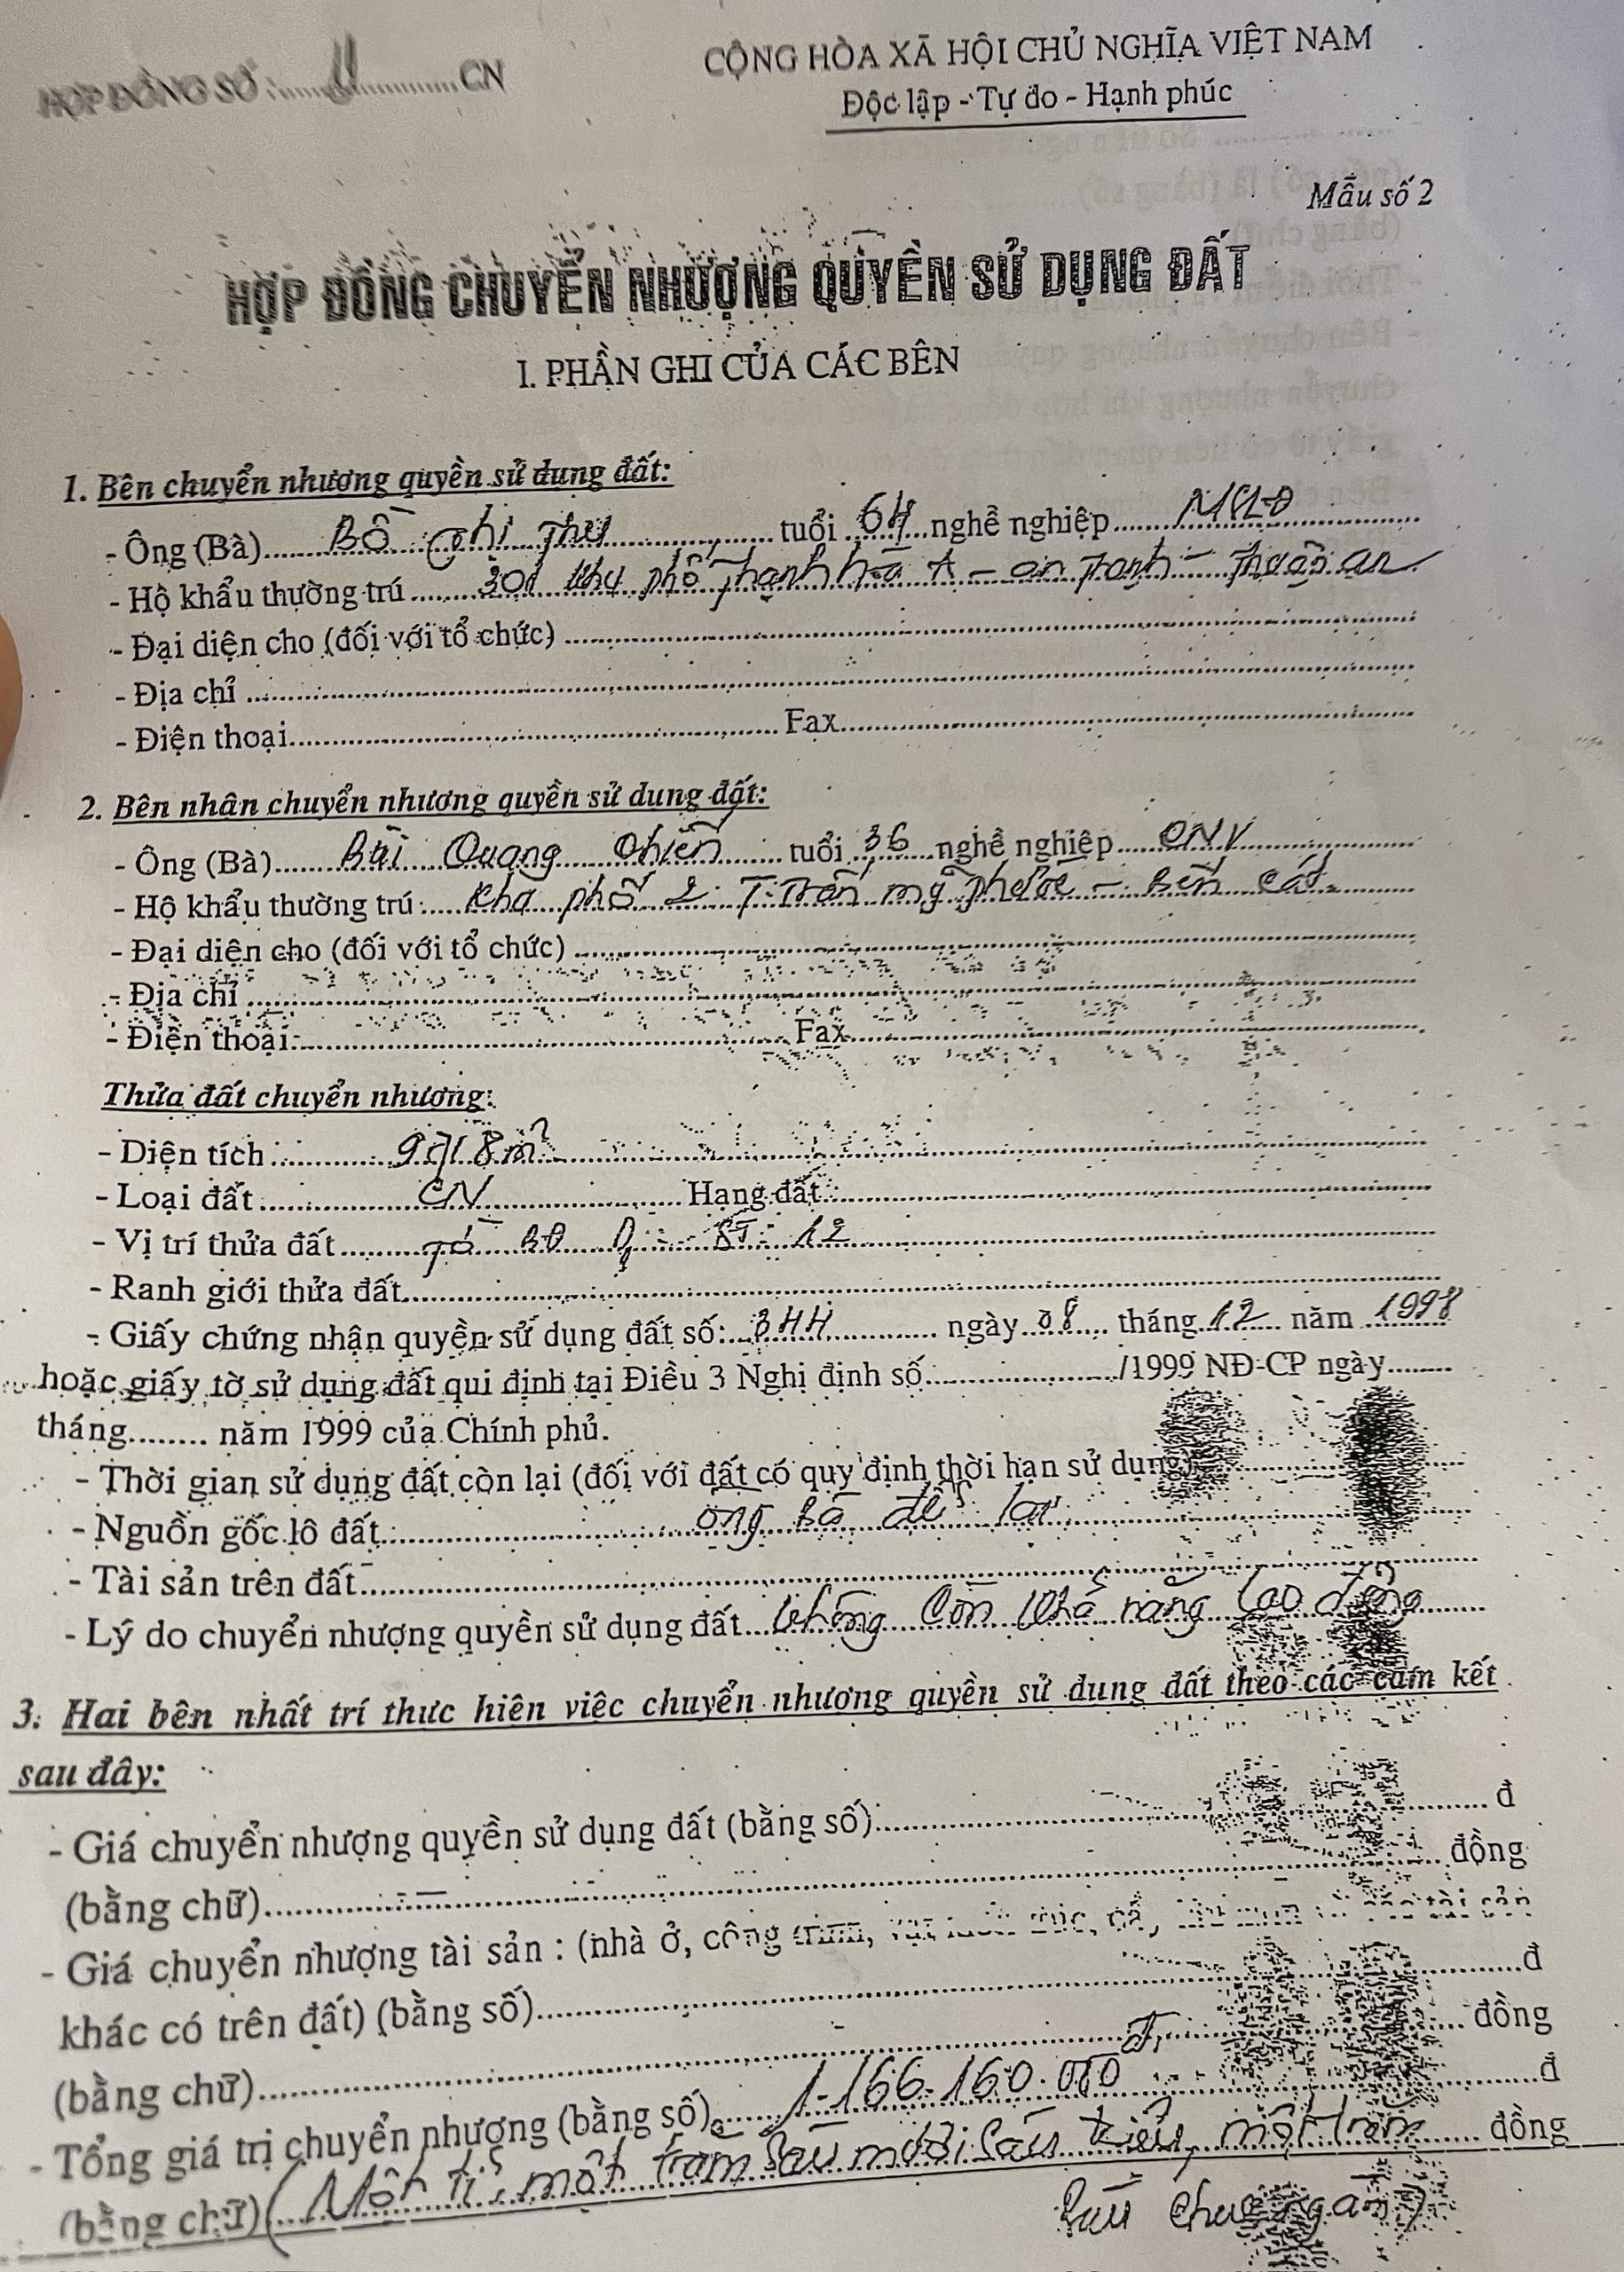 HỢP ĐỒNG SỐ :.....11..............CN
CỘNG HÒA XÃ HỘI CHỦ NGHĨA VIỆT NAM
Độc lập - Tự do - Hạnh phúc
Mẫu số 2
HỢP ĐỒNG CHUYỂN NHƯỢNG QUYỀN SỬ DỤNG ĐẤT
I. PHẦN GHI CỦA CÁC BÊN
1. Bên chuyển nhượng quyền sử dụng đất:
- Ông (Bà)..... Thị Thu ..... tuổi 64 nghề nghiệp.....
- Hộ khẩu thường trú ..... khu phố Thạnh hòa A - an Thạnh - Thuận an
- Đại diện cho (đối với tổ chức) .....
- Địa chỉ .....
- Điện thoại..... Fax.....
2. Bên nhận chuyển nhượng quyền sử dụng đất:
- Ông (Bà)..... Bùi Quang ..... tuổi 36 nghề nghiệp..... CNV
- Hộ khẩu thường trú..... khu phố 2 T.Trấn mỹ phước - Bến cát
- Đại diện cho (đối với tổ chức) .....
- Địa chỉ .....
- Điện thoại..... Fax.....
Thửa đất chuyển nhượng:
- Diện tích ..... 9718m²
- Loại đất ..... CN ..... Hạng đất.....
- Vị trí thửa đất..... 12
- Ranh giới thửa đất.....
- Giấy chứng nhận quyền sử dụng đất số:..... ngày 08 tháng 12 năm 1998
hoặc giấy tờ sử dụng đất qui định tại Điều 3 Nghị định số...../1999 NĐ-CP ngày.....
tháng..... năm 1999 của Chính phủ.
- Thời gian sử dụng đất còn lại (đối với đất có quy định thời hạn sử dụng).....
- Nguồn gốc lô đất..... ông bà để lại
- Tài sản trên đất.....
- Lý do chuyển nhượng quyền sử dụng đất..... không còn khả năng lao động
3. Hai bên nhất trí thực hiện việc chuyển nhượng quyền sử dụng đất theo các cam kết
sau đây:
- Giá chuyển nhượng quyền sử dụng đất (bằng số)..... đ
(bằng chữ)..... đồng
- Giá chuyển nhượng tài sản : (nhà ở, công trình, vật kiến trúc, tài sản
khác có trên đất) (bằng số)..... đ
(bằng chữ)..... đồng
- Tổng giá trị chuyển nhượng (bằng số)..... 1.166.160.000 đ ..... đ
(bằng chữ) (Một tỉ, một trăm sáu mươi sáu triệu, một trăm ..... đồng
sáu chục ngàn)